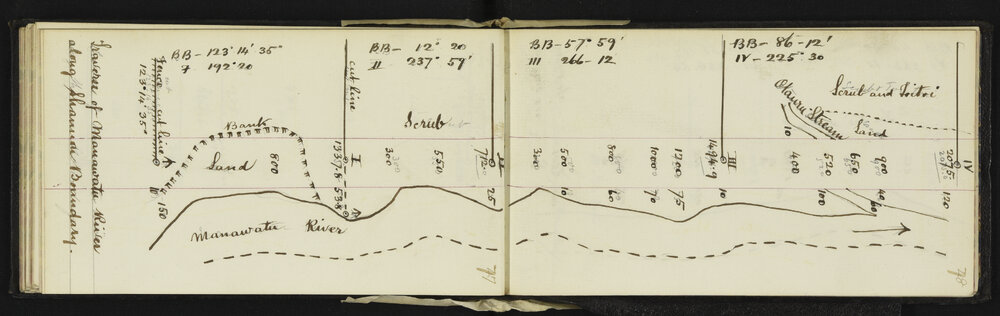 Traverse of Manawatu River
along Shannon Boundary.
Fence cut line
123° 14' 35"
BB - 123° 14' 35"
192° 20
Bank
Sand
800
150
Manawatu River
cut line
I
BB - 12° 20
II 237° 59'
Scrub
300
550
25
77
BB - 57° 59'
III 266 - 12
300
500
800
1000
1200
1494.9
10
60
70
75
10
III
BB - 86 - 12'
IV - 225° 30
Scrub and Toitoi
Otauru Stream
Sand
10
400
520
650
900
2075
IV
100
60
40
120
78